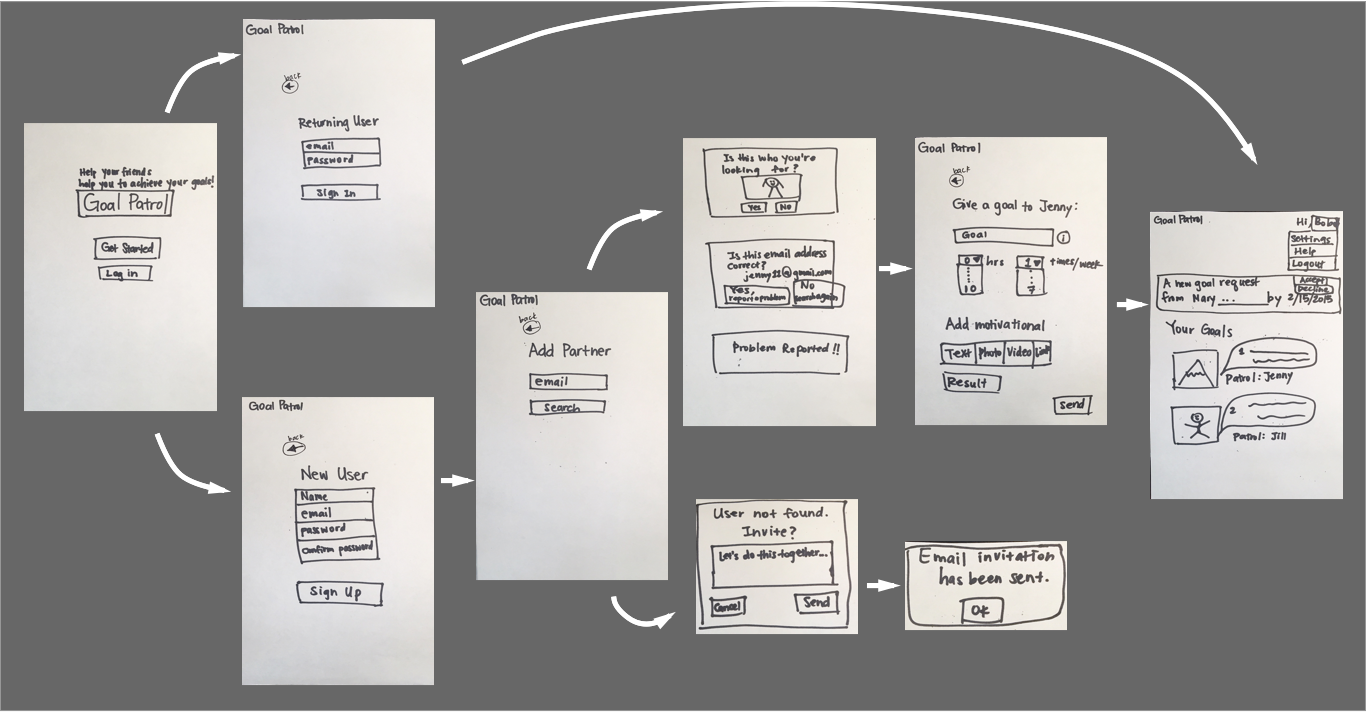 Help your friends
help you to achieve your goals!
Goal Patrol
Get Started
Log in
Goal Patrol
back
Returning User
email
password
Sign In
Goal Patrol
back
New User
Name
email
password
Confirm password
Sign Up
Goal Patrol
back
Add Partner
email
Search
Is this who you're
looking for?
Yes No
Is this email address
correct?
jenny11@gmail.com
Yes,
report a problem
No
search again
Problem Reported!!
User not found.
Invite?
Let's do this together...
Cancel Send
Email invitation
has been sent.
OK
Goal Patrol
back
Give a goal to Jenny:
Goal i
0 hrs 1 times/week
10 7
Add motivational
Text Photo Video Link
Result
Send
Goal Patrol
Hi, Bobo
Settings
Help
Logout
A new goal request
from Mary ... by 2/15/2015
Accept
Decline
Your Goals
1
Patrol: Jenny
2
Patrol: Jill